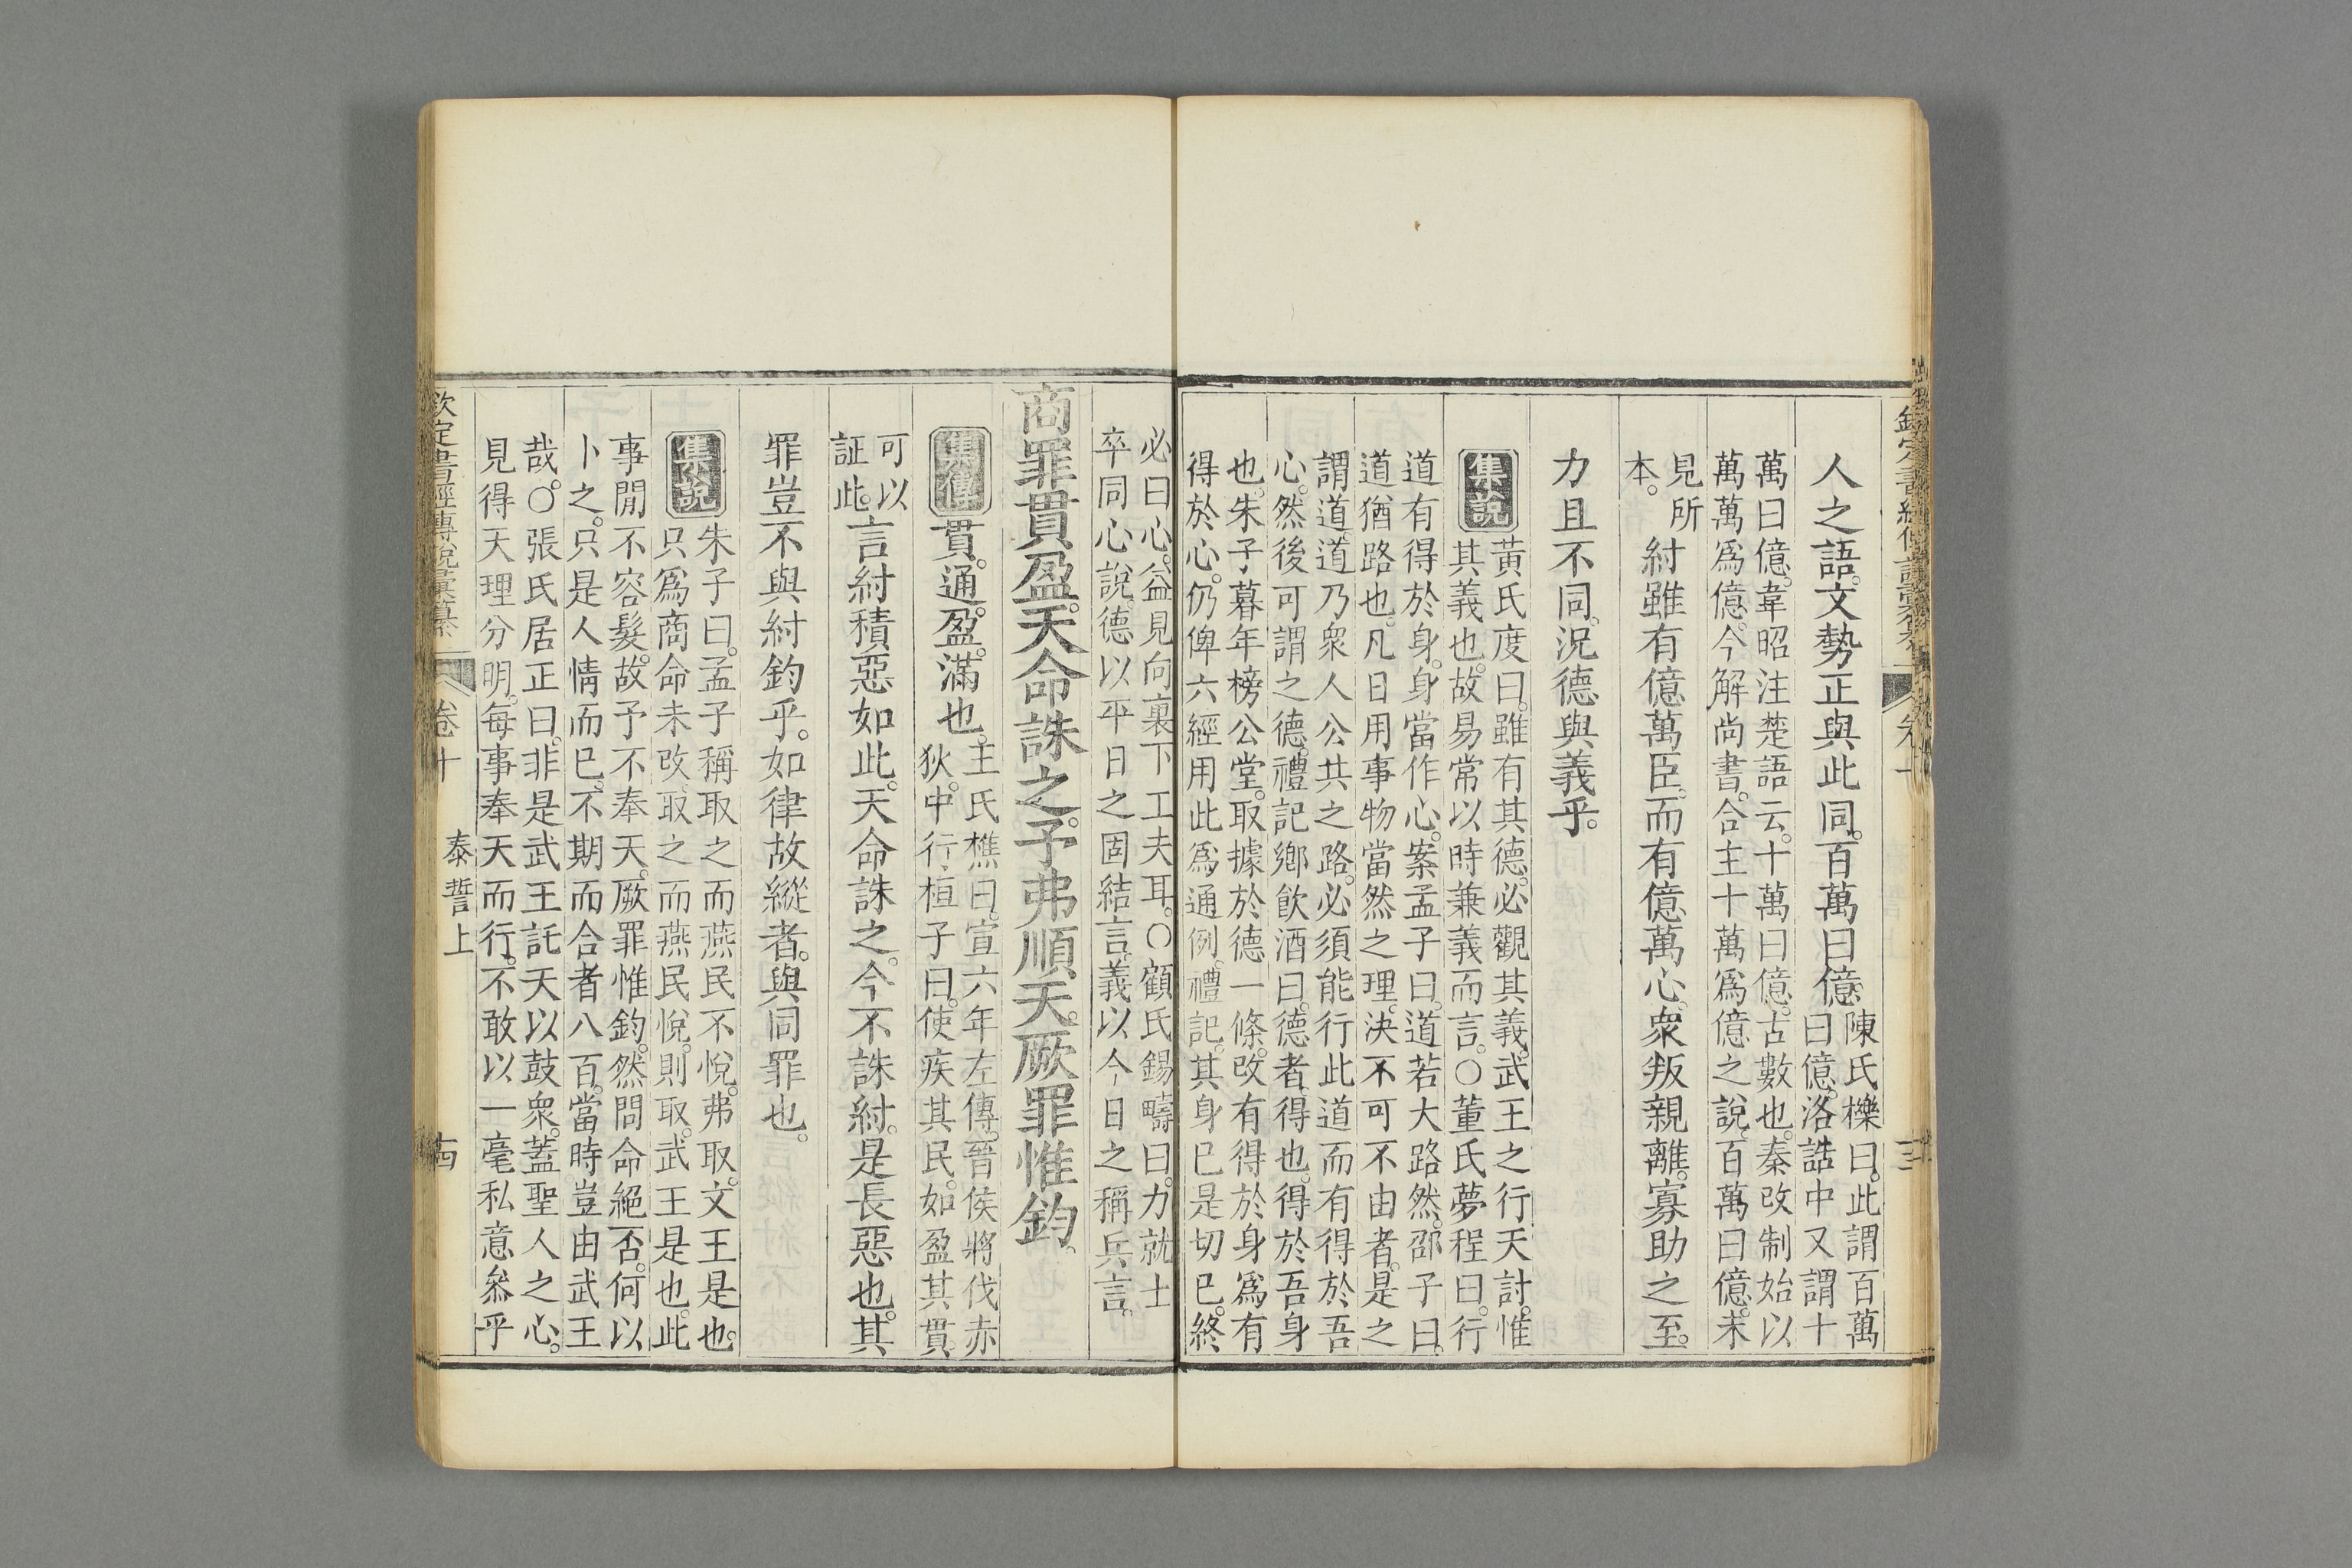 人之語。文勢正與此同。百萬曰億。陳氏櫟曰。此謂百萬
曰億。洛誥中又謂十
萬曰億。韋昭注楚語云。十萬曰億。古數也。秦改制始以
萬萬爲億。今解尚書。合主十萬爲億之說。百萬曰億。未
見所
本。
紂雖有億萬臣。而有億萬心。衆叛親離。寡助之至。
力且不同。況德與義乎。
集說
黃氏度曰。雖有其德。必觀其義。武王之行天討。惟
其義也。故易常以時兼義而言。○董氏夢程曰。行
道有得於身。身當作心。案孟子曰。道若大路然。邵子曰。
道猶路也。凡日用事物當然之理。決不可不由者。是之
謂道。道乃衆人公共之路。必須能行此道而有得於吾
心。然後可謂之德。禮記鄉飮酒曰。德者。得也。得於吾身
也。朱子暮年榜公堂。取據於德一條。改有得於身爲有
得於心。仍俾六經用此爲通例。禮記。其身已是切已。終
必曰心。益見向裏下工夫耳。○顧氏錫疇曰。力就士
卒同心說。德以平日之固結言。義以今日之稱兵言。
商罪貫盈。天命誅之。予弗順天。厥罪惟鈞。
集傳
貫。通。盈。滿也。
王氏樵曰。宣六年左傳。晉侯將伐赤
狄。中行桓子曰。使疾其民。如盈其貫。
可以
証此。
言紂積惡如此。天命誅之。今不誅紂。是長惡也。其
罪豈不與紂鈞乎。如律故縱者。與同罪也。
集說
朱子曰。孟子稱取之而燕民不悅。弗取。文王是也。
只爲商命未改。取之而燕民悅。則取。武王是也。此
事閒不容髮。故予不奉天。厥罪惟鈞。然問命絕否。何以
卜之。只是人情而已。不期而合者八百。當時豈由武王
哉。○張氏居正曰。非是武王託天以鼓衆。蓋聖人之心。
見得天理分明。每事奉天而行。不敢以一毫私意叅乎
欽定書經傳說彙纂
卷十
泰誓上
十四